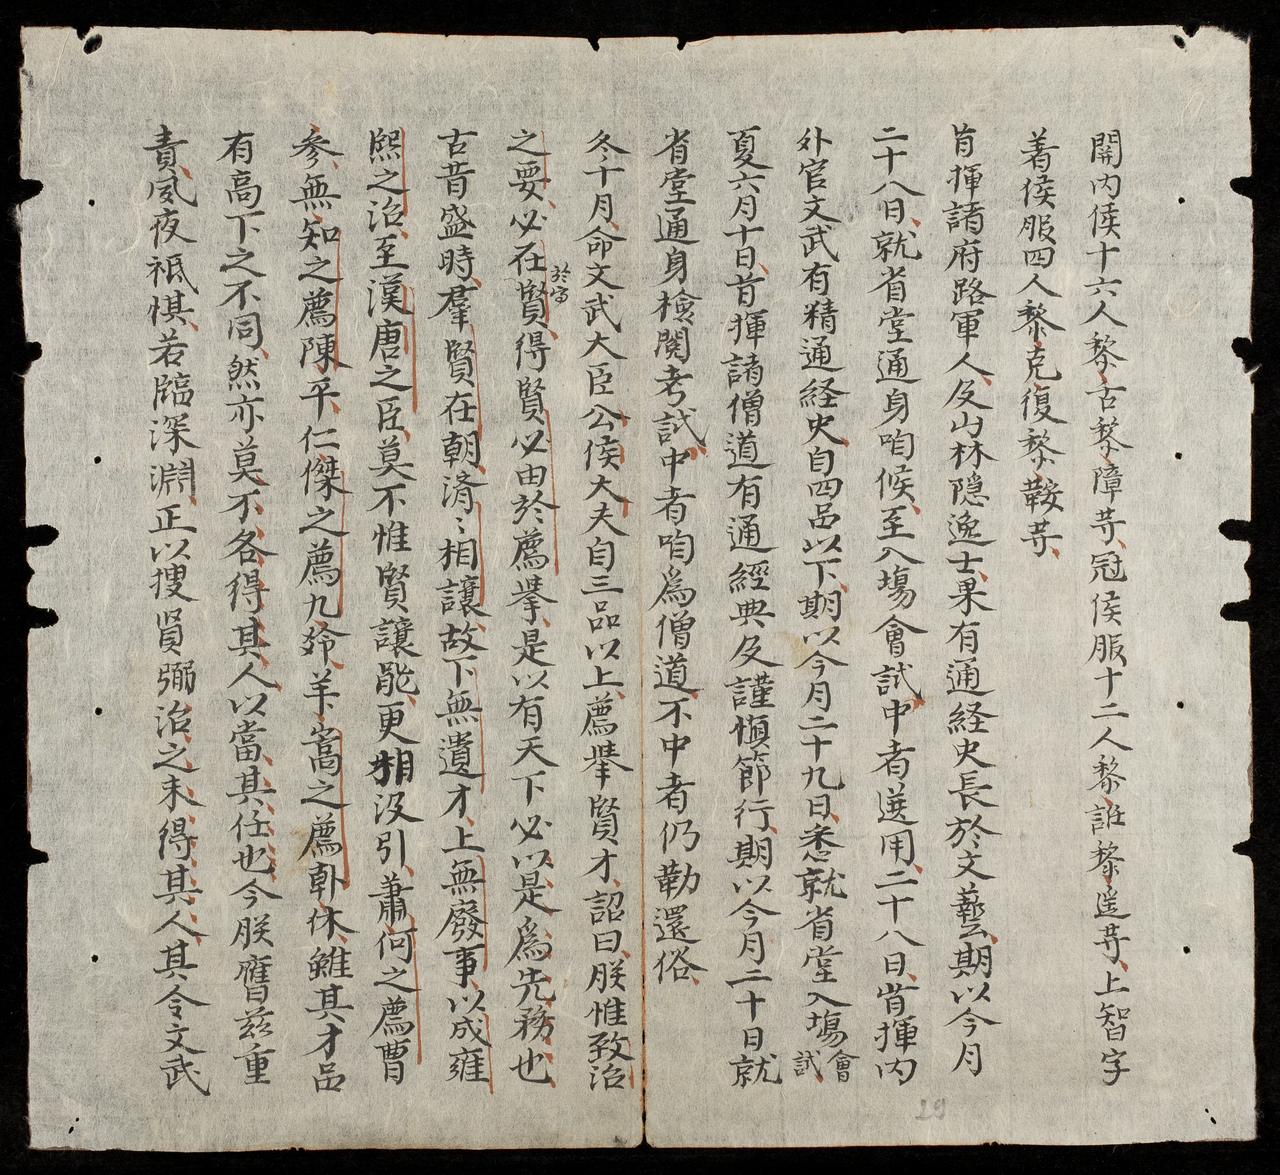 關内侯十六人黎古黎障䓁冠侯服十二人黎誰黎遥䓁上智字
著侯服四人黎克復黎鞍䓁
旨揮諸府路軍人及山林隠逸士果有通経史長於文藝期以今月
二十八日就省堂通身咱候至入塲會試中者選用二十八日旨揮内
外官文武有精通経史自四品以下期以今月二十九日悉就省堂入塲會試
夏六月十日旨揮諸僧道有通經典及謹慎節行期以今月二十日就
省堂通身檢閱考試中者咱為僧道不中者仍勒還俗
冬十月命文武大臣公侯大夫自三品以上薦舉賢才詔曰朕惟致治
之要必在於賢得賢必由於薦舉是以有天下必以是為先務也
古昔盛時羣賢在朝濟〻相讓故下無遺才上無廢事以成雍
熙之治至漢唐之臣莫不惟賢讓能更相汲引蕭何之薦曹
參無知之薦陳平仁傑之薦九齡羊嵩之薦韓休雖其才品
有高下之不同然亦莫不各得其人以當其任也今朕膺兹重
責夙夜祗懼若臨深淵正以搜賢弼治之未得其人其令文武
29